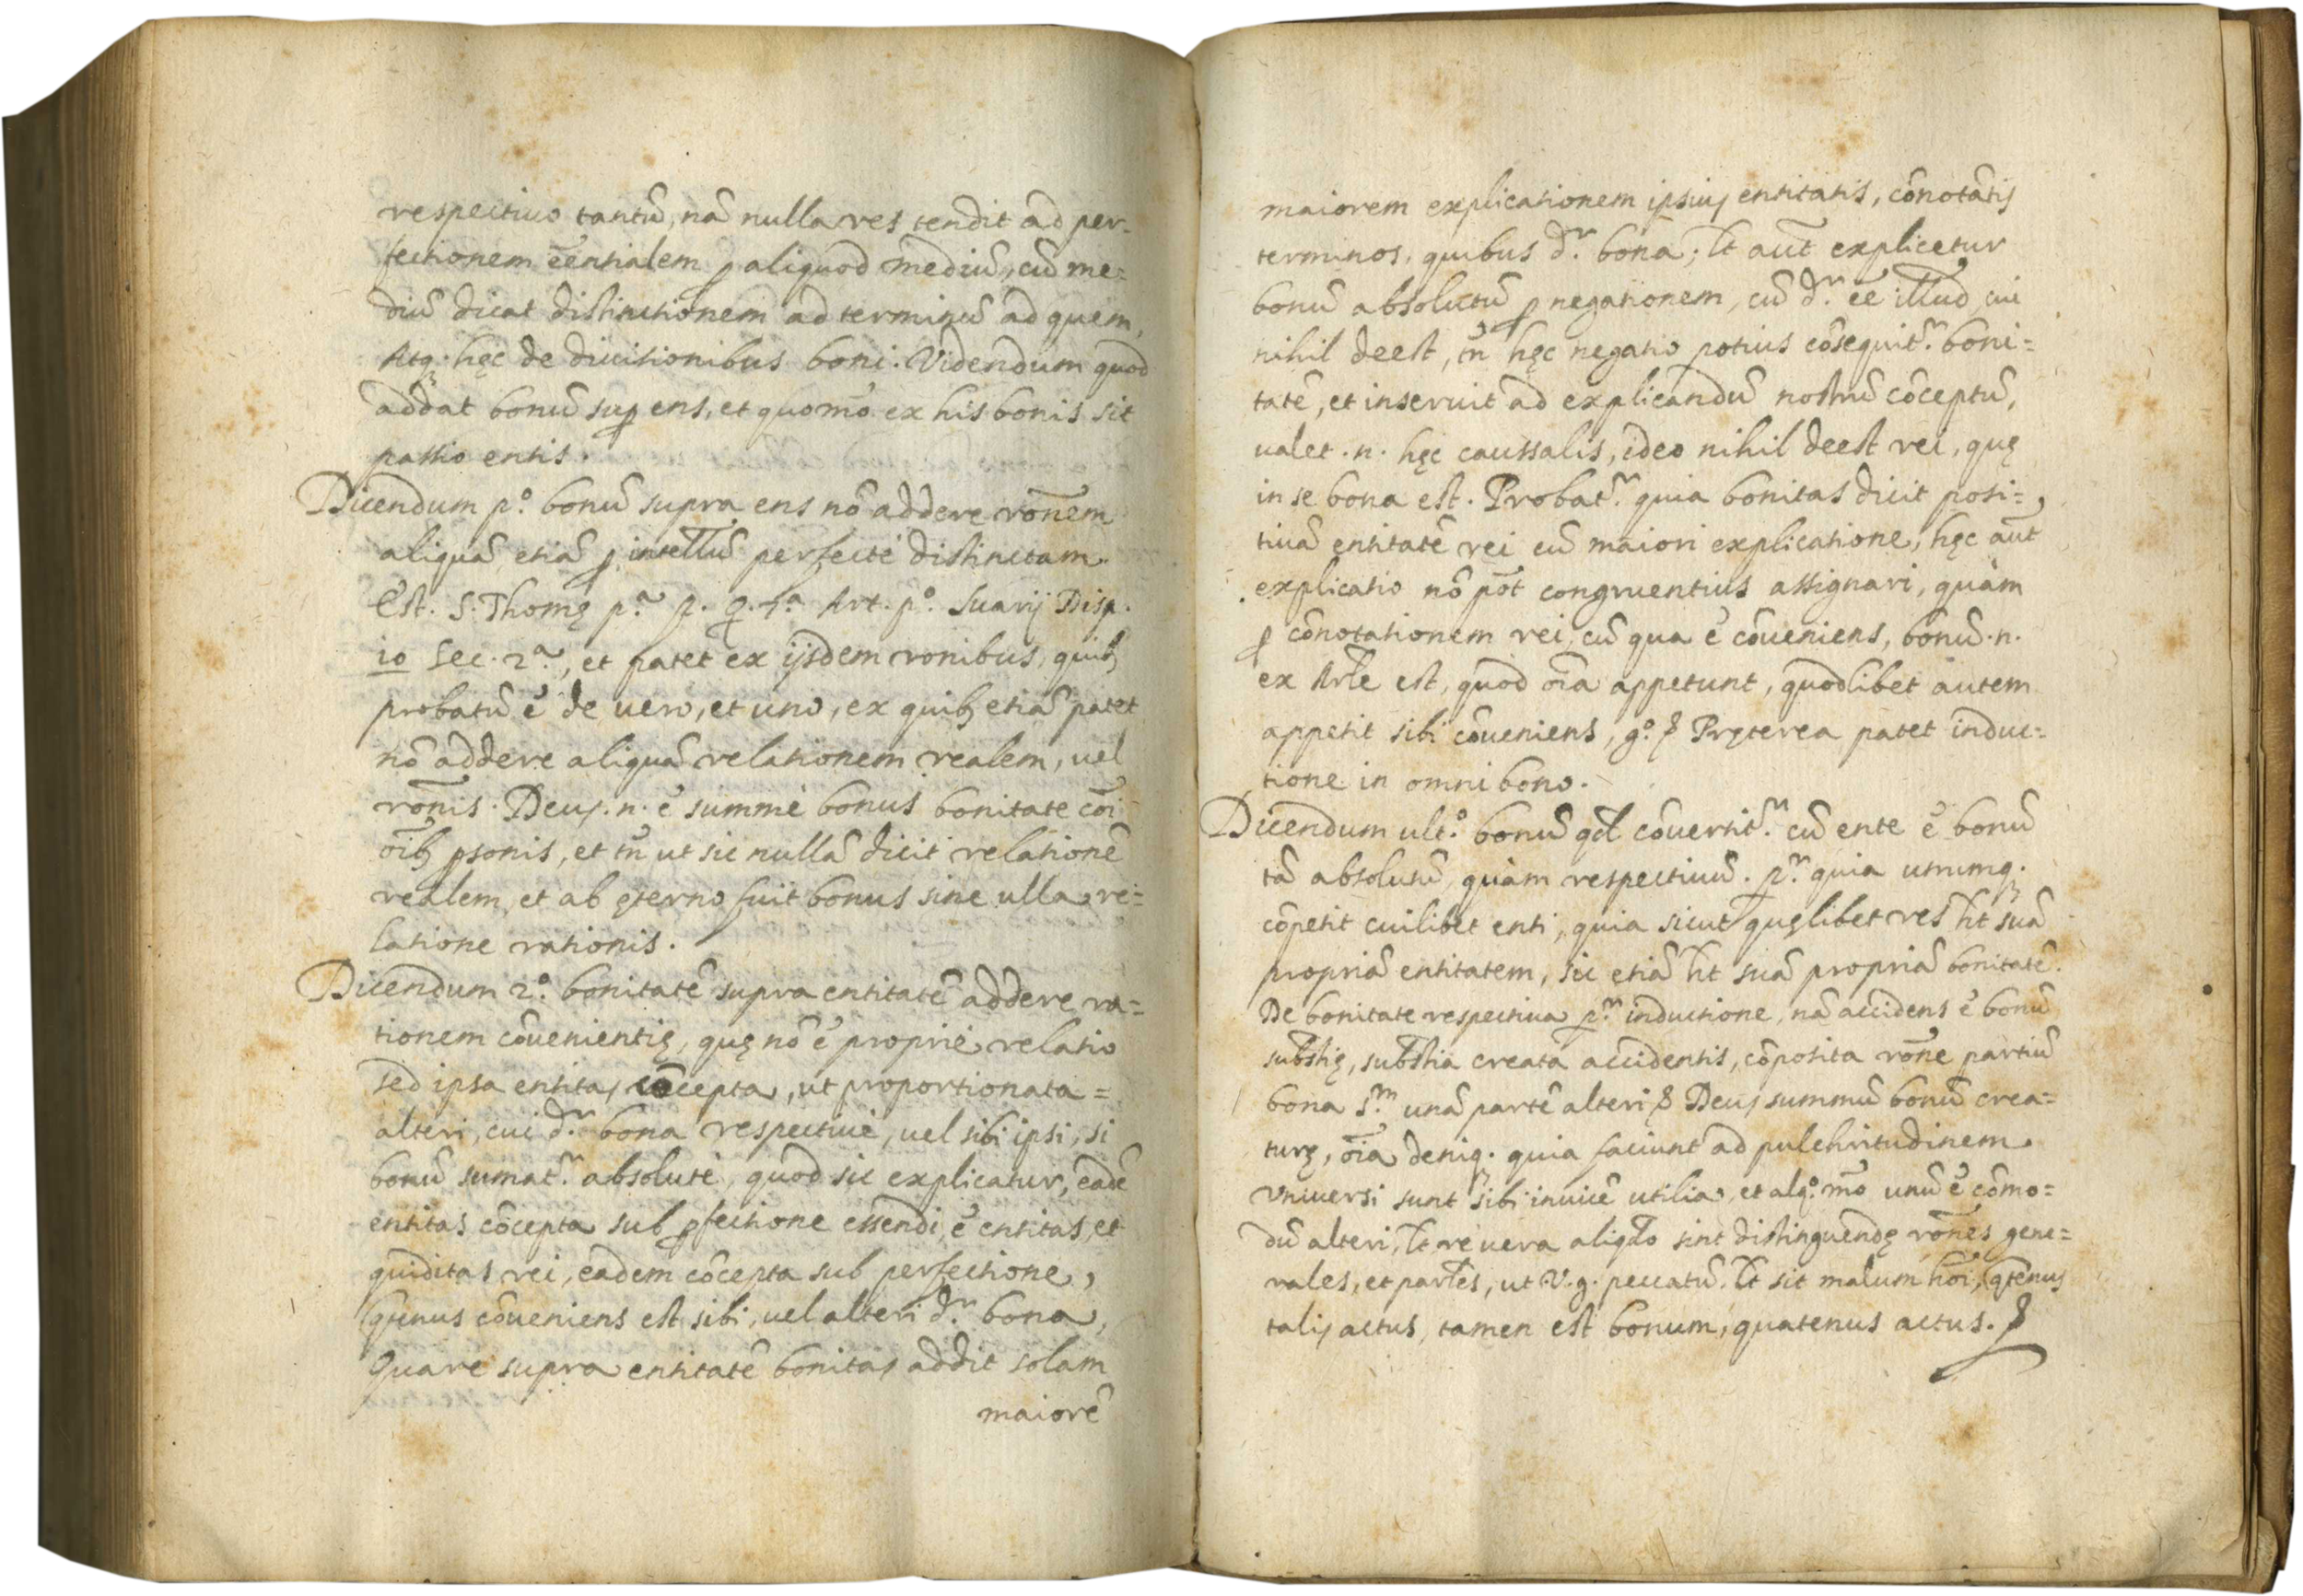 respectiuo tantũ, nã nulla res tendit ad per-
fectionem eẽntialem ꝑ aliquod mediũ, cũ me=
diũ dicat distinctionem ad terminũ ad quem,
Atq; hęc de diuisionibus boni. Videndum quod
addat bonũ suꝑ ens, et quom̃o ex his bonis sit
passio entis.
Dicendum pº. bonũ supra ens nõ addere rõnem
aliquã etiã ꝑ intellũ perfectè distinctam.
Est. S. Thomę pª. p. q. 5ª. Art. pº. Suarij Disp.
10 Sec. 2ª., et patet ex ijsdem ronibus, quib;
probatũ ẽ de uero, et uno, ex quib; etiã patet
nõ addere aliquã relationem realem, uel
rõnis. Deus .n. ẽ summè bonus bonitate cõi
oĩb; ꝑsonis, et tñ ut sic nullã dicit relationẽ
realem, et ab ęterno fuit bonus sine ulla re=
latione rationis.
Dicendum 2º. bonitatẽ supra entitatẽ addere ra=
tionem cõuenientię, quę nõ ẽ propriè relatio
sed ipsa entitas cõcepta, ut proportionata =
alteri, cui dʳ. bona respectiuè, uel sibi ipsi, si
bonũ sumatʳ. absolutè, quod sic explicatur, eadẽ
entitas cõcepta sub ꝑfectione essendi, ẽ entitas, et
quiditas rei, eadem cõcepta sub perfectione,
qũnus cõueniens est sibi, uel alteri dʳ. bona,
Quare supra entitatẽ bonitas addit solam
maiorẽ
maiorem explicationem ipsius entitatis, cõnotãtis
terminos, quibus dʳ. bona; lt aũt explicetur
bonũ absolutũ ꝑ negationem, cũ dʳ. eẽ illud, cui
nihil deest, tñ hęc negatio potius cõsequitʳ. boni=
tatẽ, et inseruit ad explicandũ nostrũ cõceptũ,
ualet .n. hęc caussalis, ideo nihil deest rei, quę
in se bona est. Probatʳ. quia bonitas dicit posi=
tiuã entitatẽ rei cũ maiori explicatione, hęc aũt
explicatio nõ põt congruentius assignari, quàm
ꝑ cõnotationem rei, cũ qua ẽ cõueniens, bonũ .n.
ex Arle est, quod oĩa appetunt, quodlibet autem
appetit sibi cõueniens, gº. & Pręterea patet induc=
tione in omni bono.
Dicendum ultº. bonũ qd cõuertitʳ. cũ ente ẽ bonũ
tã absolutũ, quàm respectiuũ. pʳ. quia utrumq;
cõpetit cuilibet enti, quia sicut quęlibet res ht suã
propriã entitatem, sic etiã ht suã propriã bonitatẽ.
De bonitate respectiua pʳ. inductione, nã accidens ẽ bonũ
substię, substia creata accidentis, cõposita rõne partiũ
bona sᵐ. unã partẽ alteri & Deus summũ bonũ crea=
turę, oĩa deniq; quia faciunt ad pulchritudinem
Vniuersi sunt sibi inuicẽ utilia, et alqº. mõ unũ ẽ cõmo=
dũ alteri, lt reuera aliqdo sint distinguendę rõnes gene=
rales, et parles, ut V.g. peccatũ. lt sit malum hõi, qtenus
talis actus, tamen est bonum, quatenus actus. &